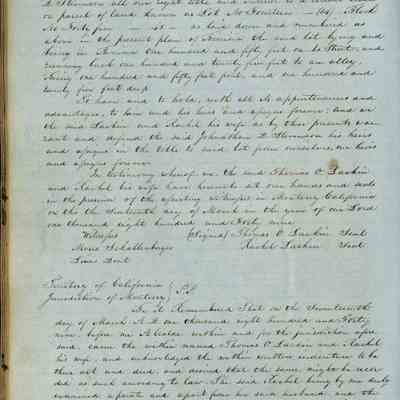 D Stevenson all our right title and interest to a certain lot
or parcel of land known as Lot No Fourteen — 14 — Block
No Forty five — 45 — as laid down and numbered as
above in the present plan of Benicia the said lot lying and
being in Benicia One hundred and fifty feet on the Street, and
running back one hundred and twenty five feet to an alley,
being one hundred and fifty feet front, and one hundred and
twenty five feet deep
To have and to hold, with all its appurtenances and
advantages, to him and his heirs and assigns forever; And we
the said Larkin and Rachel his wife do by these presents war
rant and defend the said Johnathan D Stevenson his heirs
and assigns in the title to said lot from ourselves, our heirs
and assigns forever
In testimony whereof we, the said Thomas O. Larkin
and Rachel his wife have hereunto set our hands and seals
in the presence of the affecting witnesses in Monterey California
on this the Seventeenth day of March in the year of our Lord
one thousand eight hundred and Forty nine
Witnesses (Signed) Thomas O Larkin Seal
Moses Schallenberger Rachel Larkin Seal
Lewis Dent
Territory of California
Jurisdiction of Monterey } S.S.
Be it Remembered That on the Seventeenth
day of March A.D. one thousand eight hundred and Forty
nine, before me Alcalde within and for the jurisdiction afore
said, came the within named Thomas O Larkin and Rachel
his wife, and acknowledged the within written indenture to be
their act and deed, and desired that the same might be recor
ded as such according to law. The said Rachel being by me duly
examined separate and apart from her said husband, and the